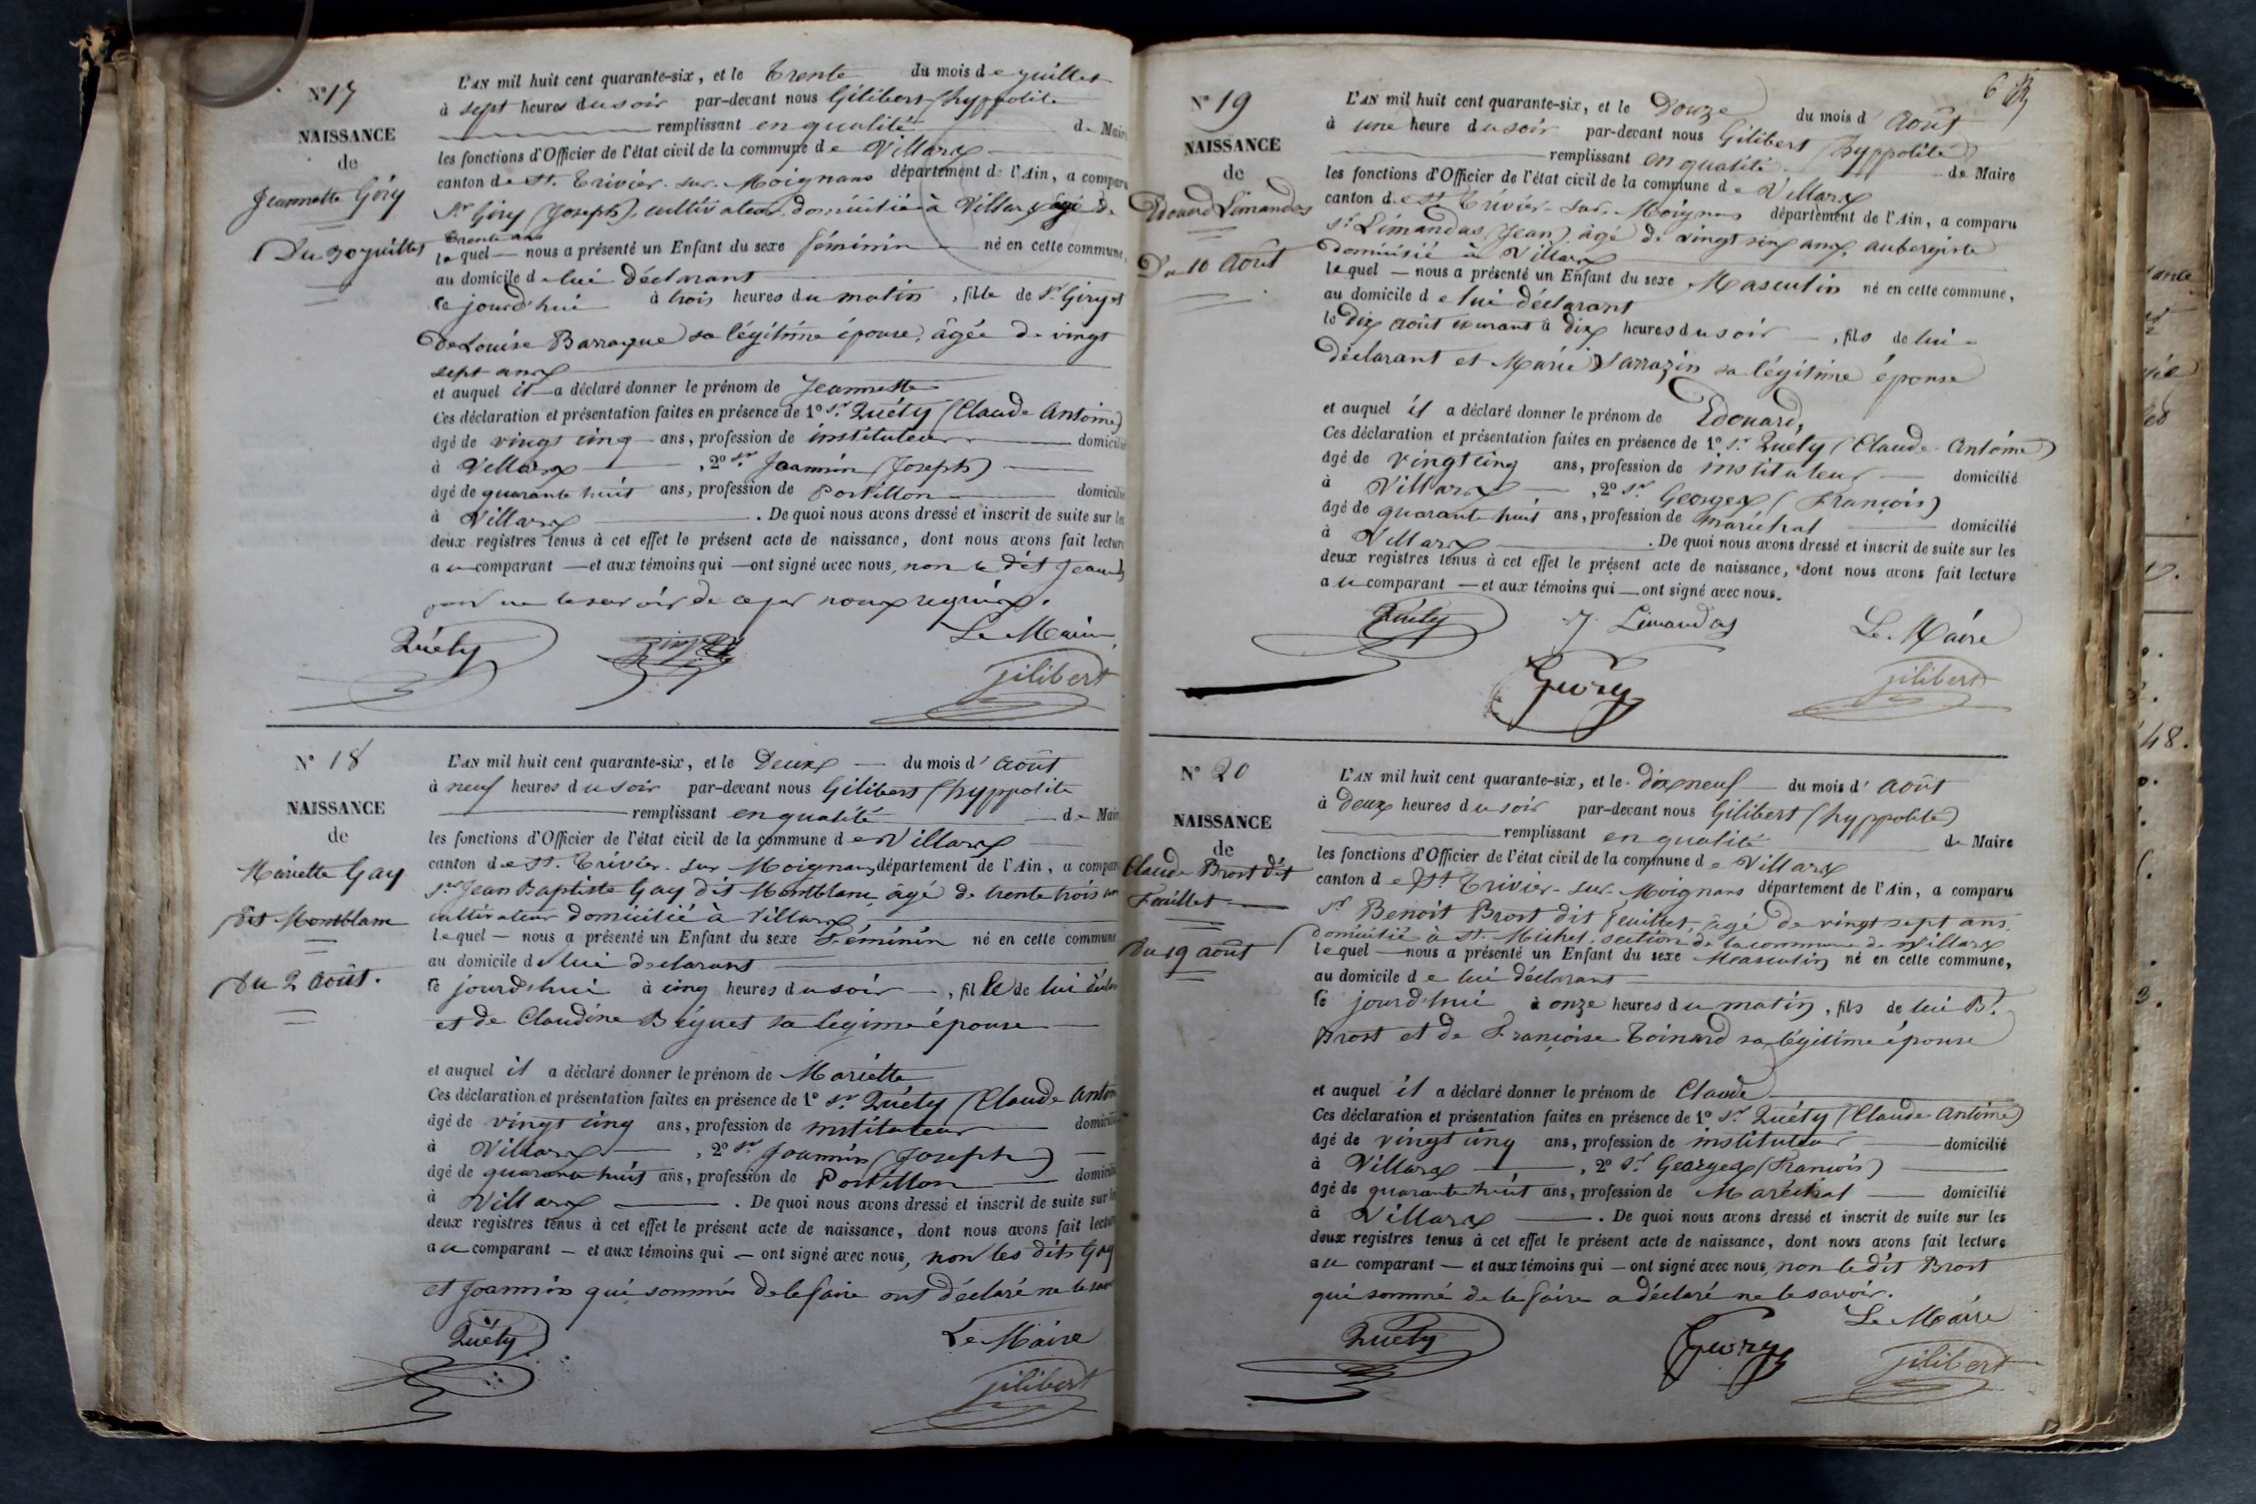 N° 17
NAISSANCE
de
Jeannette Géry
Du 30 juillet
L'AN mil huit cent quarante-six, et le trente du mois de juillet
à sept heures du soir par-devant nous Gilibert (hyppolite
remplissant en qualité de Maire
les fonctions d'Officier de l'état civil de la commune de Villars
canton de St. Trivier-sur-Moignans département de l'Ain, a comparu
Sr Géry (Joseph), cultivateur, domicilié à Villars, âgé de
trente ans
lequel — nous a présenté un Enfant du sexe féminin né en cette commune,
au domicile de lui déclarant
ce jourd'hui à trois heures du matin, fille de Sr Géry et
de Louise Barraque sa légitime épouse, âgée de vingt
sept ans
et auquel il a déclaré donner le prénom de Jeannette
Ces déclaration et présentation faites en présence de 1° Sr Quéty (Claude Antoine)
âgé de vingt cinq ans, profession de instituteur domicilié
à Villars, 2° Sr Joannin (Joseph)
âgé de quarante huit ans, profession de Postillon domicilié
à Villars. De quoi nous avons dressé et inscrit de suite sur les
deux registres tenus à cet effet le présent acte de naissance, dont nous avons fait lecture
au comparant — et aux témoins qui — ont signé avec nous, non le dit
pour ne le savoir de ce par nous requis.
Quéty Le Maire
Gilibert
N° 18
NAISSANCE
de
Mariette Gay
dit Montblanc
Du 2 août.
L'AN mil huit cent quarante-six, et le deux — du mois d'août
à neuf heures du soir par-devant nous Gilibert (hyppolite
remplissant en qualité de Maire
les fonctions d'Officier de l'état civil de la commune de Villars
canton de St. Trivier-sur Moignans, département de l'Ain, a comparu
Sr Jean Baptiste Gay dit Montblanc, âgé de trente trois ans
cultivateur domicilié à Villars
lequel — nous a présenté un Enfant du sexe Féminin né en cette commune
au domicile de lui déclarant
ce jourd'hui à cinq heures du soir, fille de lui déclarant
et de Claudine Béguet sa légime épouse
et auquel il a déclaré donner le prénom de Mariette
Ces déclaration et présentation faites en présence de 1° Sr Quéty (Claude Antoine
âgé de vingt cinq ans, profession de instituteur domicilié
à Villars, 2° Sr Joannin (Joseph)
âgé de quarante huit ans, profession de Postillon domicilié
à Villars. De quoi nous avons dressé et inscrit de suite sur les
deux registres tenus à cet effet le présent acte de naissance, dont nous avons fait lecture
au comparant — et aux témoins qui — ont signé avec nous, non les dits Gay
et Joannin qui sommés de le faire ont déclaré ne le savoir
Quéty Le Maire
Gilibert
6
N° 19
NAISSANCE
de
Edouard Limandas
Du 10 Août
L'AN mil huit cent quarante-six, et le Douze du mois d'Août
à une heure du soir par-devant nous Gilibert (hyppolite)
remplissant en qualité de Maire
les fonctions d'Officier de l'état civil de la commune de Villars
canton de St Trivier-sur-Moignans département de l'Ain, a comparu
Sr Limandas (Jean), âgé de vingt six ans, aubergiste
domicilié à Villars
lequel — nous a présenté un Enfant du sexe Masculin né en cette commune,
au domicile de lui déclarant
le Dix août courant à dix heures du soir, fils de lui
déclarant et Marie Sarrazin sa légitime épouse
et auquel il a déclaré donner le prénom de Edouard,
Ces déclaration et présentation faites en présence de 1° Sr Quéty (Claude Antoine)
âgé de vingt cinq ans, profession de instituteur — domicilié
à Villars, 2° Sr Georges (François)
âgé de quarante huit ans, profession de maréchal domicilié
à Villars. De quoi nous avons dressé et inscrit de suite sur les
deux registres tenus à cet effet le présent acte de naissance, dont nous avons fait lecture
au comparant — et aux témoins qui — ont signé avec nous.
Quéty J. Limandas Le Maire
Georges Gilibert
N° 20
NAISSANCE
de
Claude Brost dit
Feuillet
Du 19 août
L'AN mil huit cent quarante-six, et le dix neuf — du mois d'août
à deux heures du soir par-devant nous Gilibert (hyppolite)
remplissant en qualité de Maire
les fonctions d'Officier de l'état civil de la commune de Villars
canton de St Trivier-sur-Moignans département de l'Ain, a comparu
Sr Benoit Brost dit Feuillet, âgé de vingt sept ans
domicilié à St. Michel, section de la commune de Villars
lequel — nous a présenté un Enfant du sexe Masculin né en cette commune,
au domicile de lui déclarant
ce jourd'hui à onze heures du matin, fils de lui Bt.
Brost et de Françoise Toinard sa légitime épouse
et auquel il a déclaré donner le prénom de Claude
Ces déclaration et présentation faites en présence de 1° Sr Quéty (Claude Antoine)
âgé de vingt cinq ans, profession de instituteur domicilié
à Villars, 2° Sr Georges (François)
âgé de quarante huit ans, profession de Maréchal — domicilié
à Villars. De quoi nous avons dressé et inscrit de suite sur les
deux registres tenus à cet effet le présent acte de naissance, dont nous avons fait lecture
au comparant — et aux témoins qui — ont signé avec nous, non le dit Brost
qui sommé de le faire a déclaré ne le savoir.
Le Maire
Quéty Georges Gilibert
48.